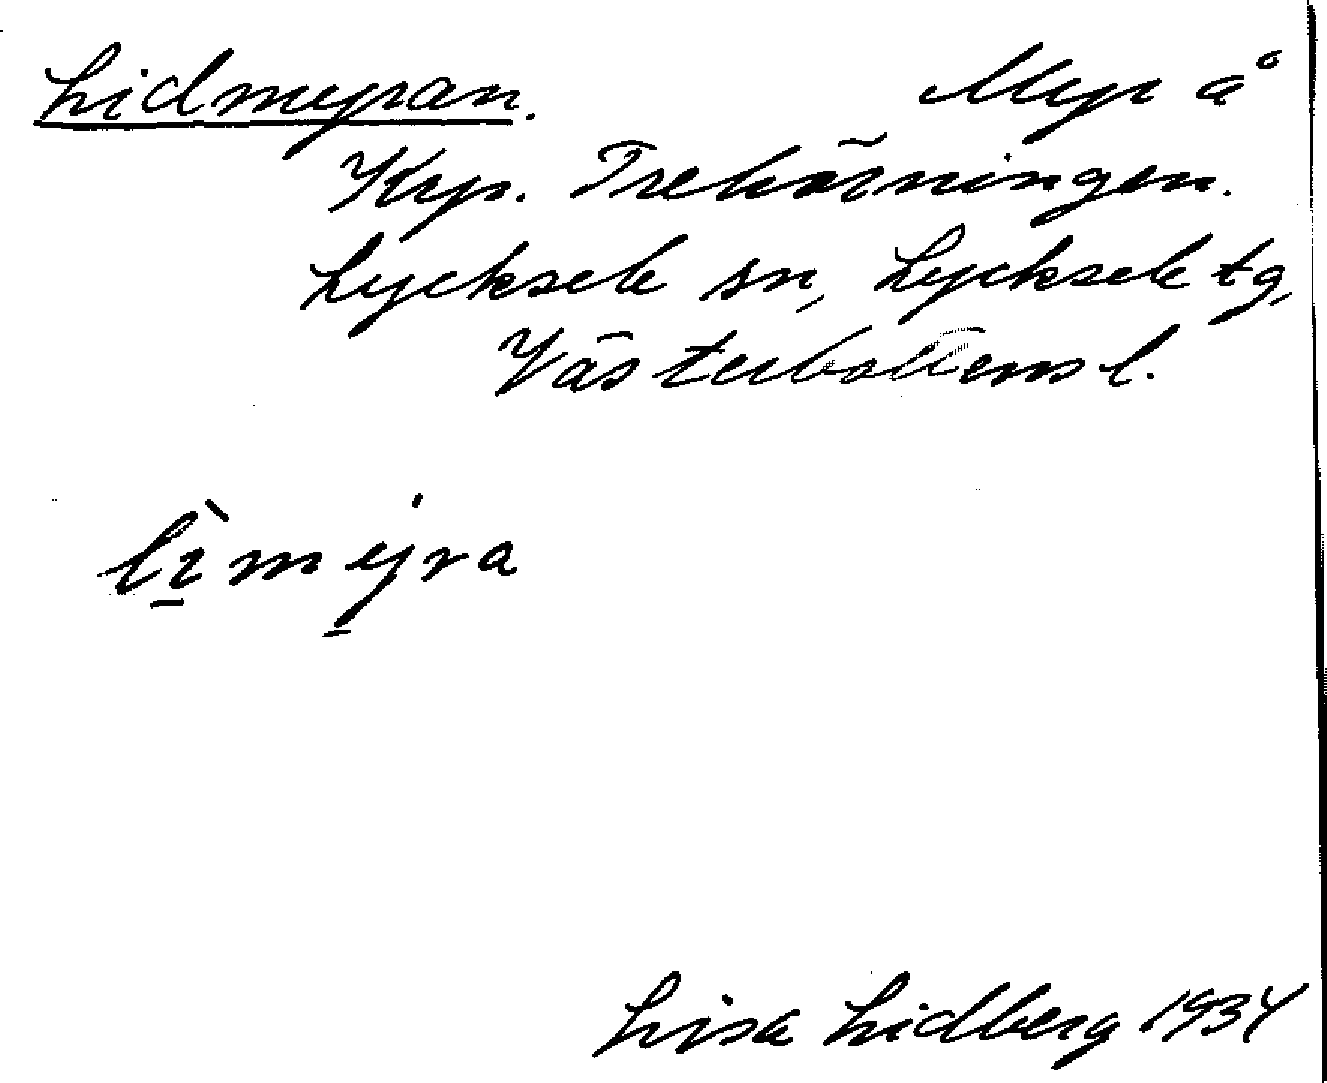 Lidmyran. Myr å
Krp. Trehörningen.
Lycksele sn, Lycksele tg,
Västerbottens l.
lìmyra
Lisa Lidberg 1934